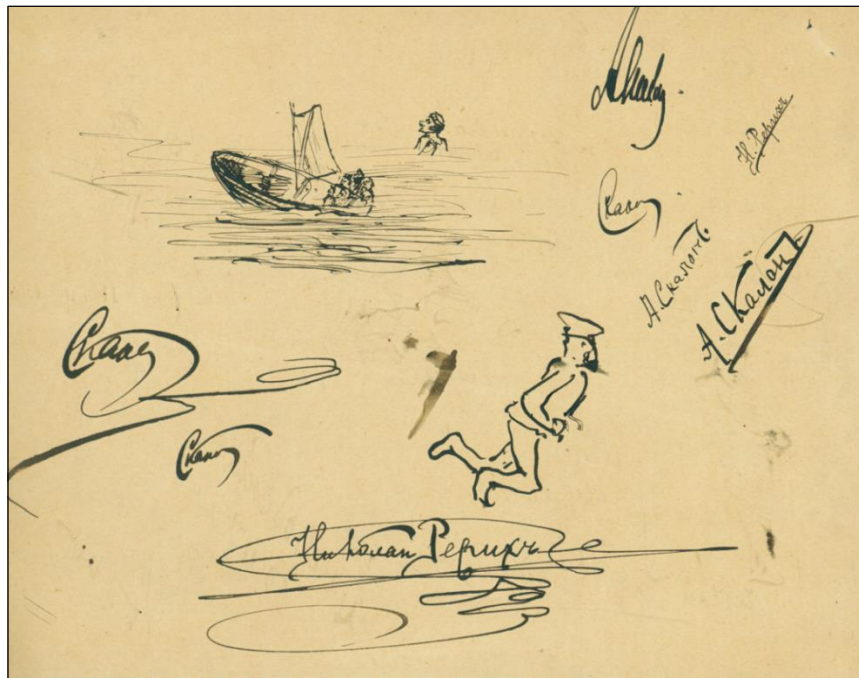 Н. Рерихъ
Скалон
А. Скалонъ
А. Скалонъ
Скалон
Скалон
Николай Рерихъ